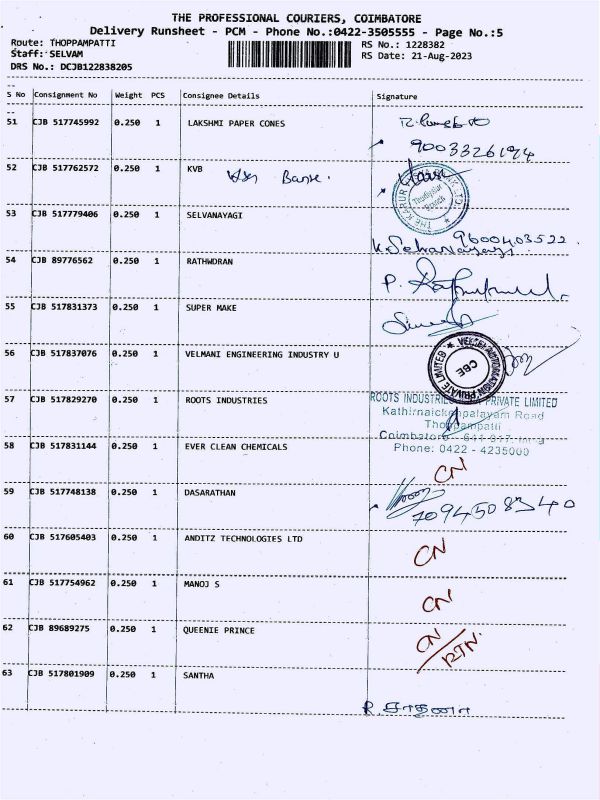 THE PROFESSIONAL COURIERS, COIMBATORE
Delivery Runsheet - PCM - Phone No.:0422-3505555 - Page No.:5
Route: THOPPAMPATTI
Staff: SELVAM
DRS No.: DCJB122838205
RS No.: 1228382
RS Date: 21-Aug-2023
S No Consignment No Weight PCS Consignee Details Signature
51 CJB 517745992 0.250 1 LAKSHMI PAPER CONES
9003326194
52 CJB 517762572 0.250 1 KVB
53 CJB 517779406 0.250 1 SELVANAYAGI
9600403522
K. Selvanayagi
54 CJB 89776562 0.250 1 RATHWDRAN
55 CJB 517831373 0.250 1 SUPER MAKE
56 CJB 517837076 0.250 1 VELMANI ENGINEERING INDUSTRY U
CBE
PRIVATE LIMITED
57 CJB 517829270 0.250 1 ROOTS INDUSTRIES
ROOTS INDUSTRIES PRIVATE LIMITED
Kathirnaickenpalayam Road
Thoppampatti
Coimbatore
Phone: 0422 - 4235000
58 CJB 517831144 0.250 1 EVER CLEAN CHEMICALS
CN
59 CJB 517748138 0.250 1 DASARATHAN
7094508340
60 CJB 517605403 0.250 1 ANDITZ TECHNOLOGIES LTD
CN
61 CJB 517754962 0.250 1 MANOJ S
CN
62 CJB 89689275 0.250 1 QUEENIE PRINCE
CN/RTN
63 CJB 517801909 0.250 1 SANTHA